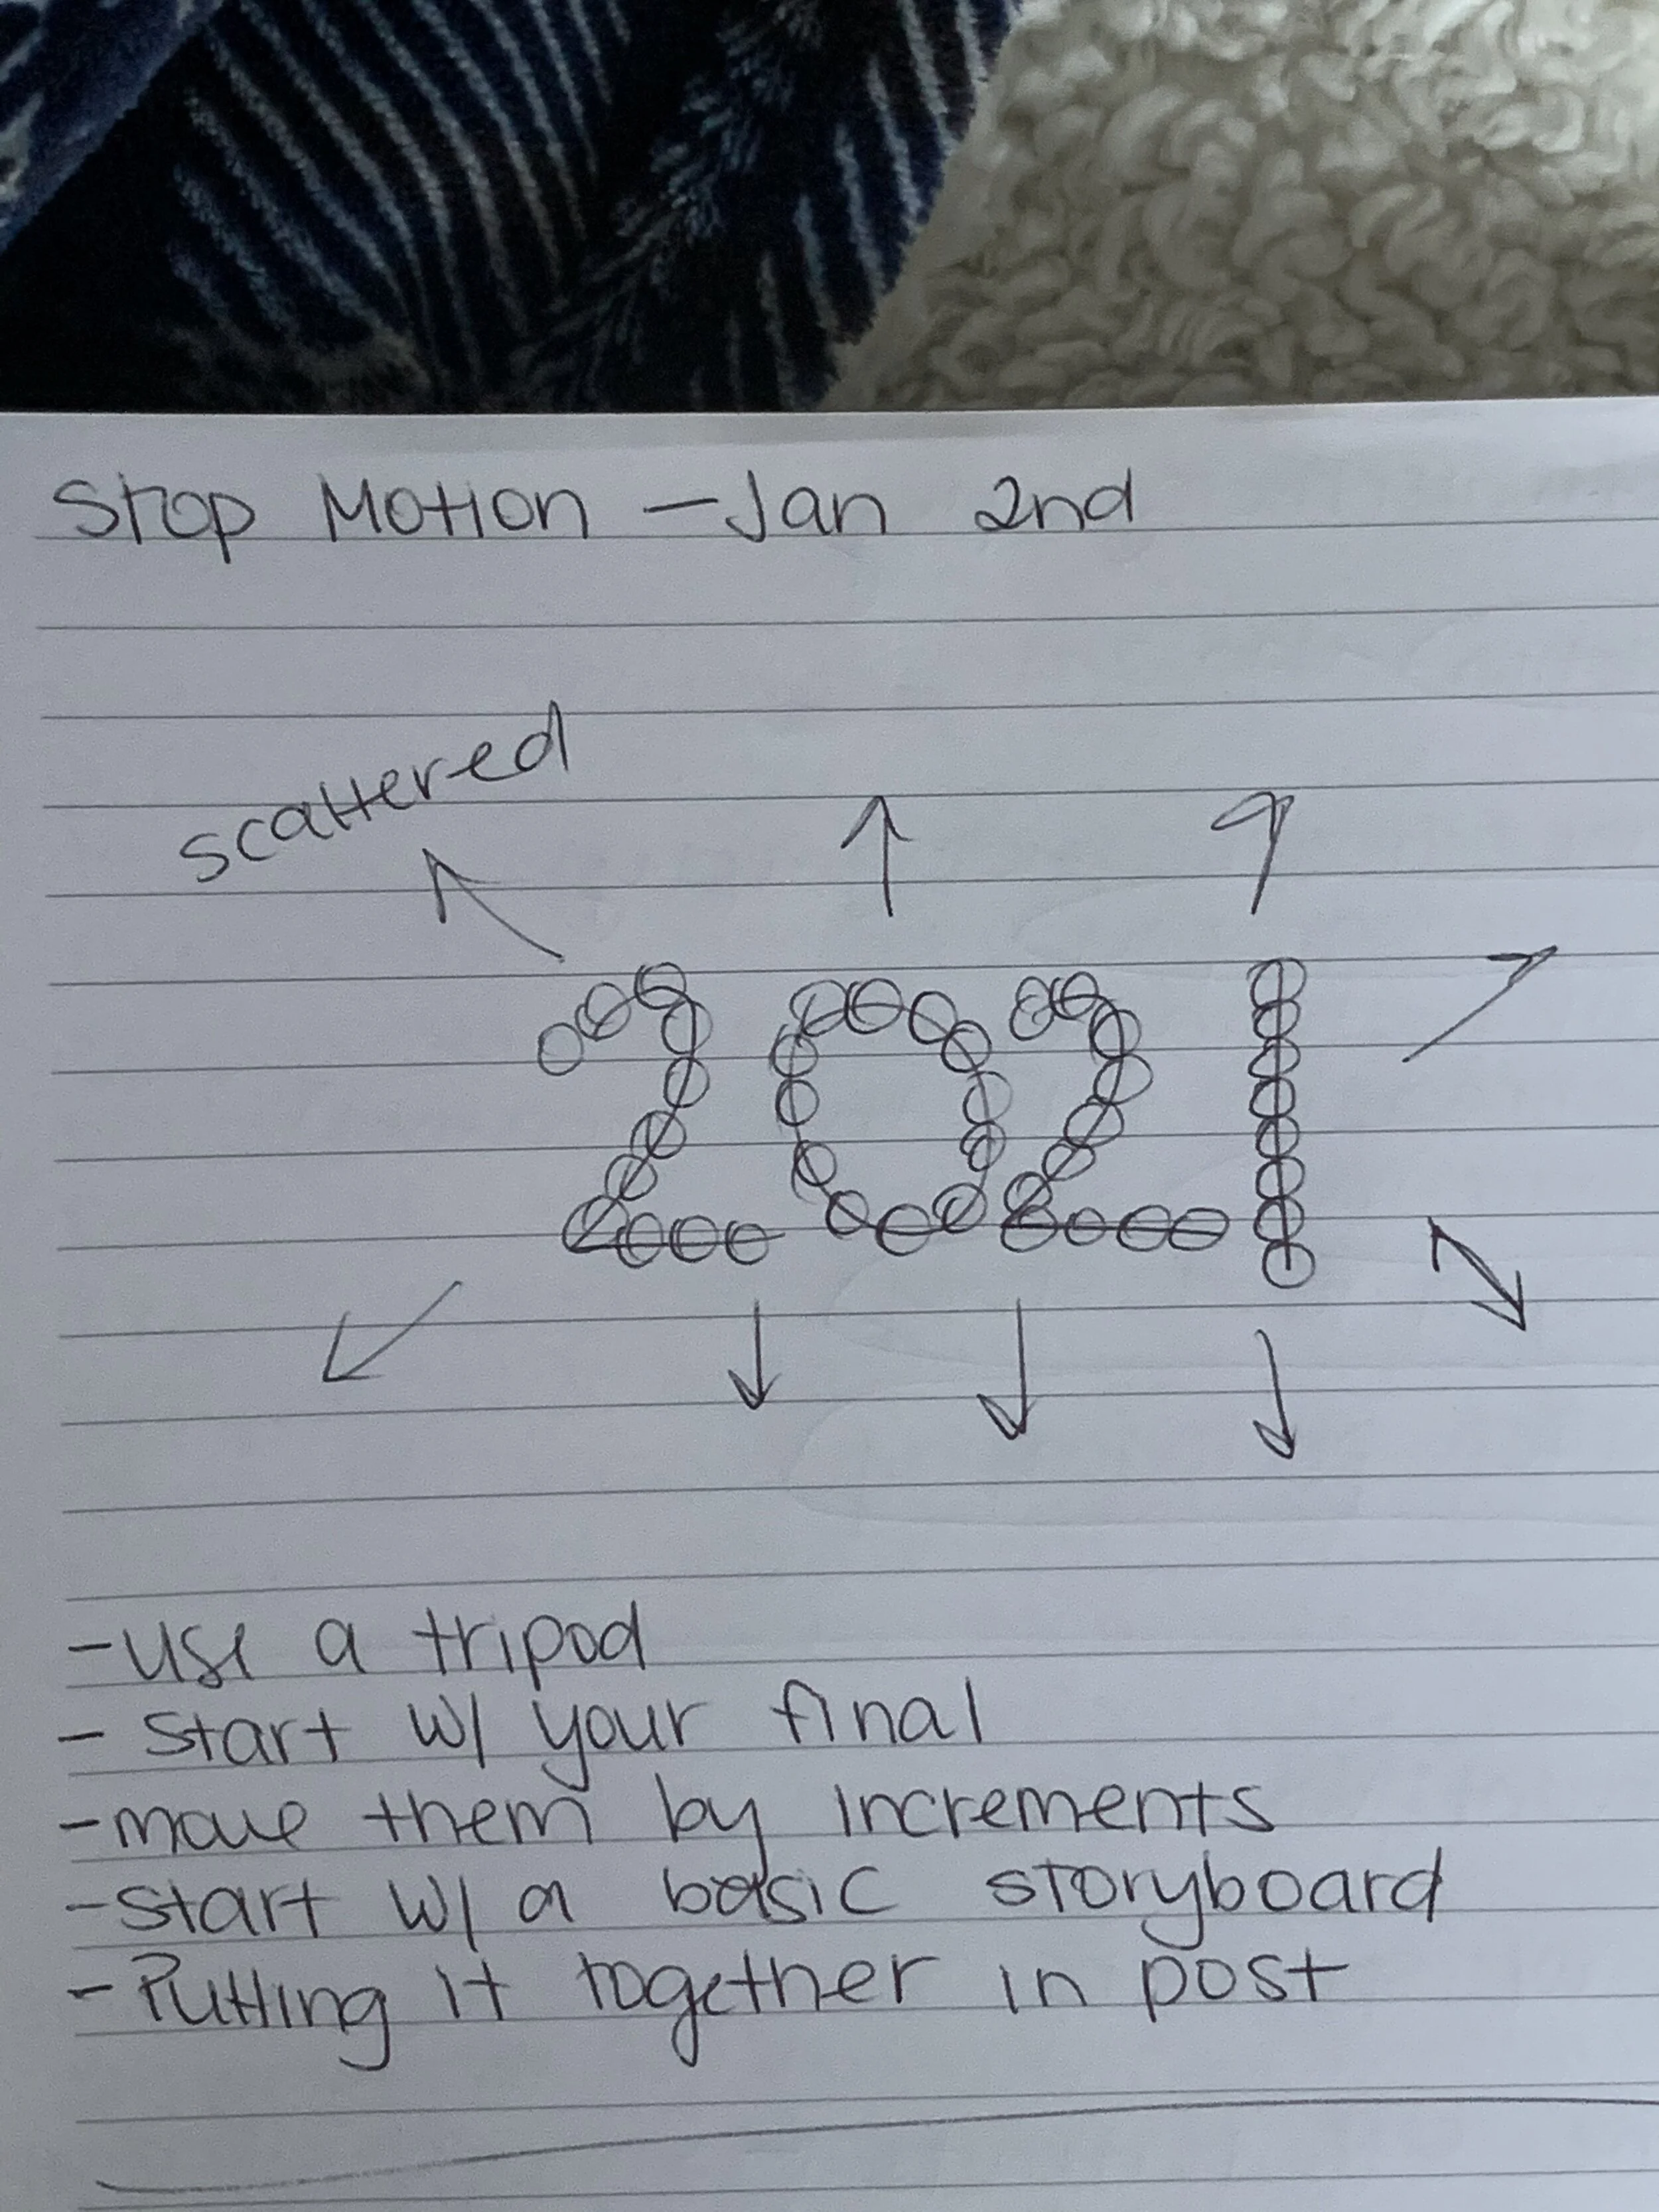 Stop Motion - Jan 2nd
scattered
2021
- use a tripod
- start w/ your final
- move them by increments
- start w/ a basic storyboard
- Putting it together in post